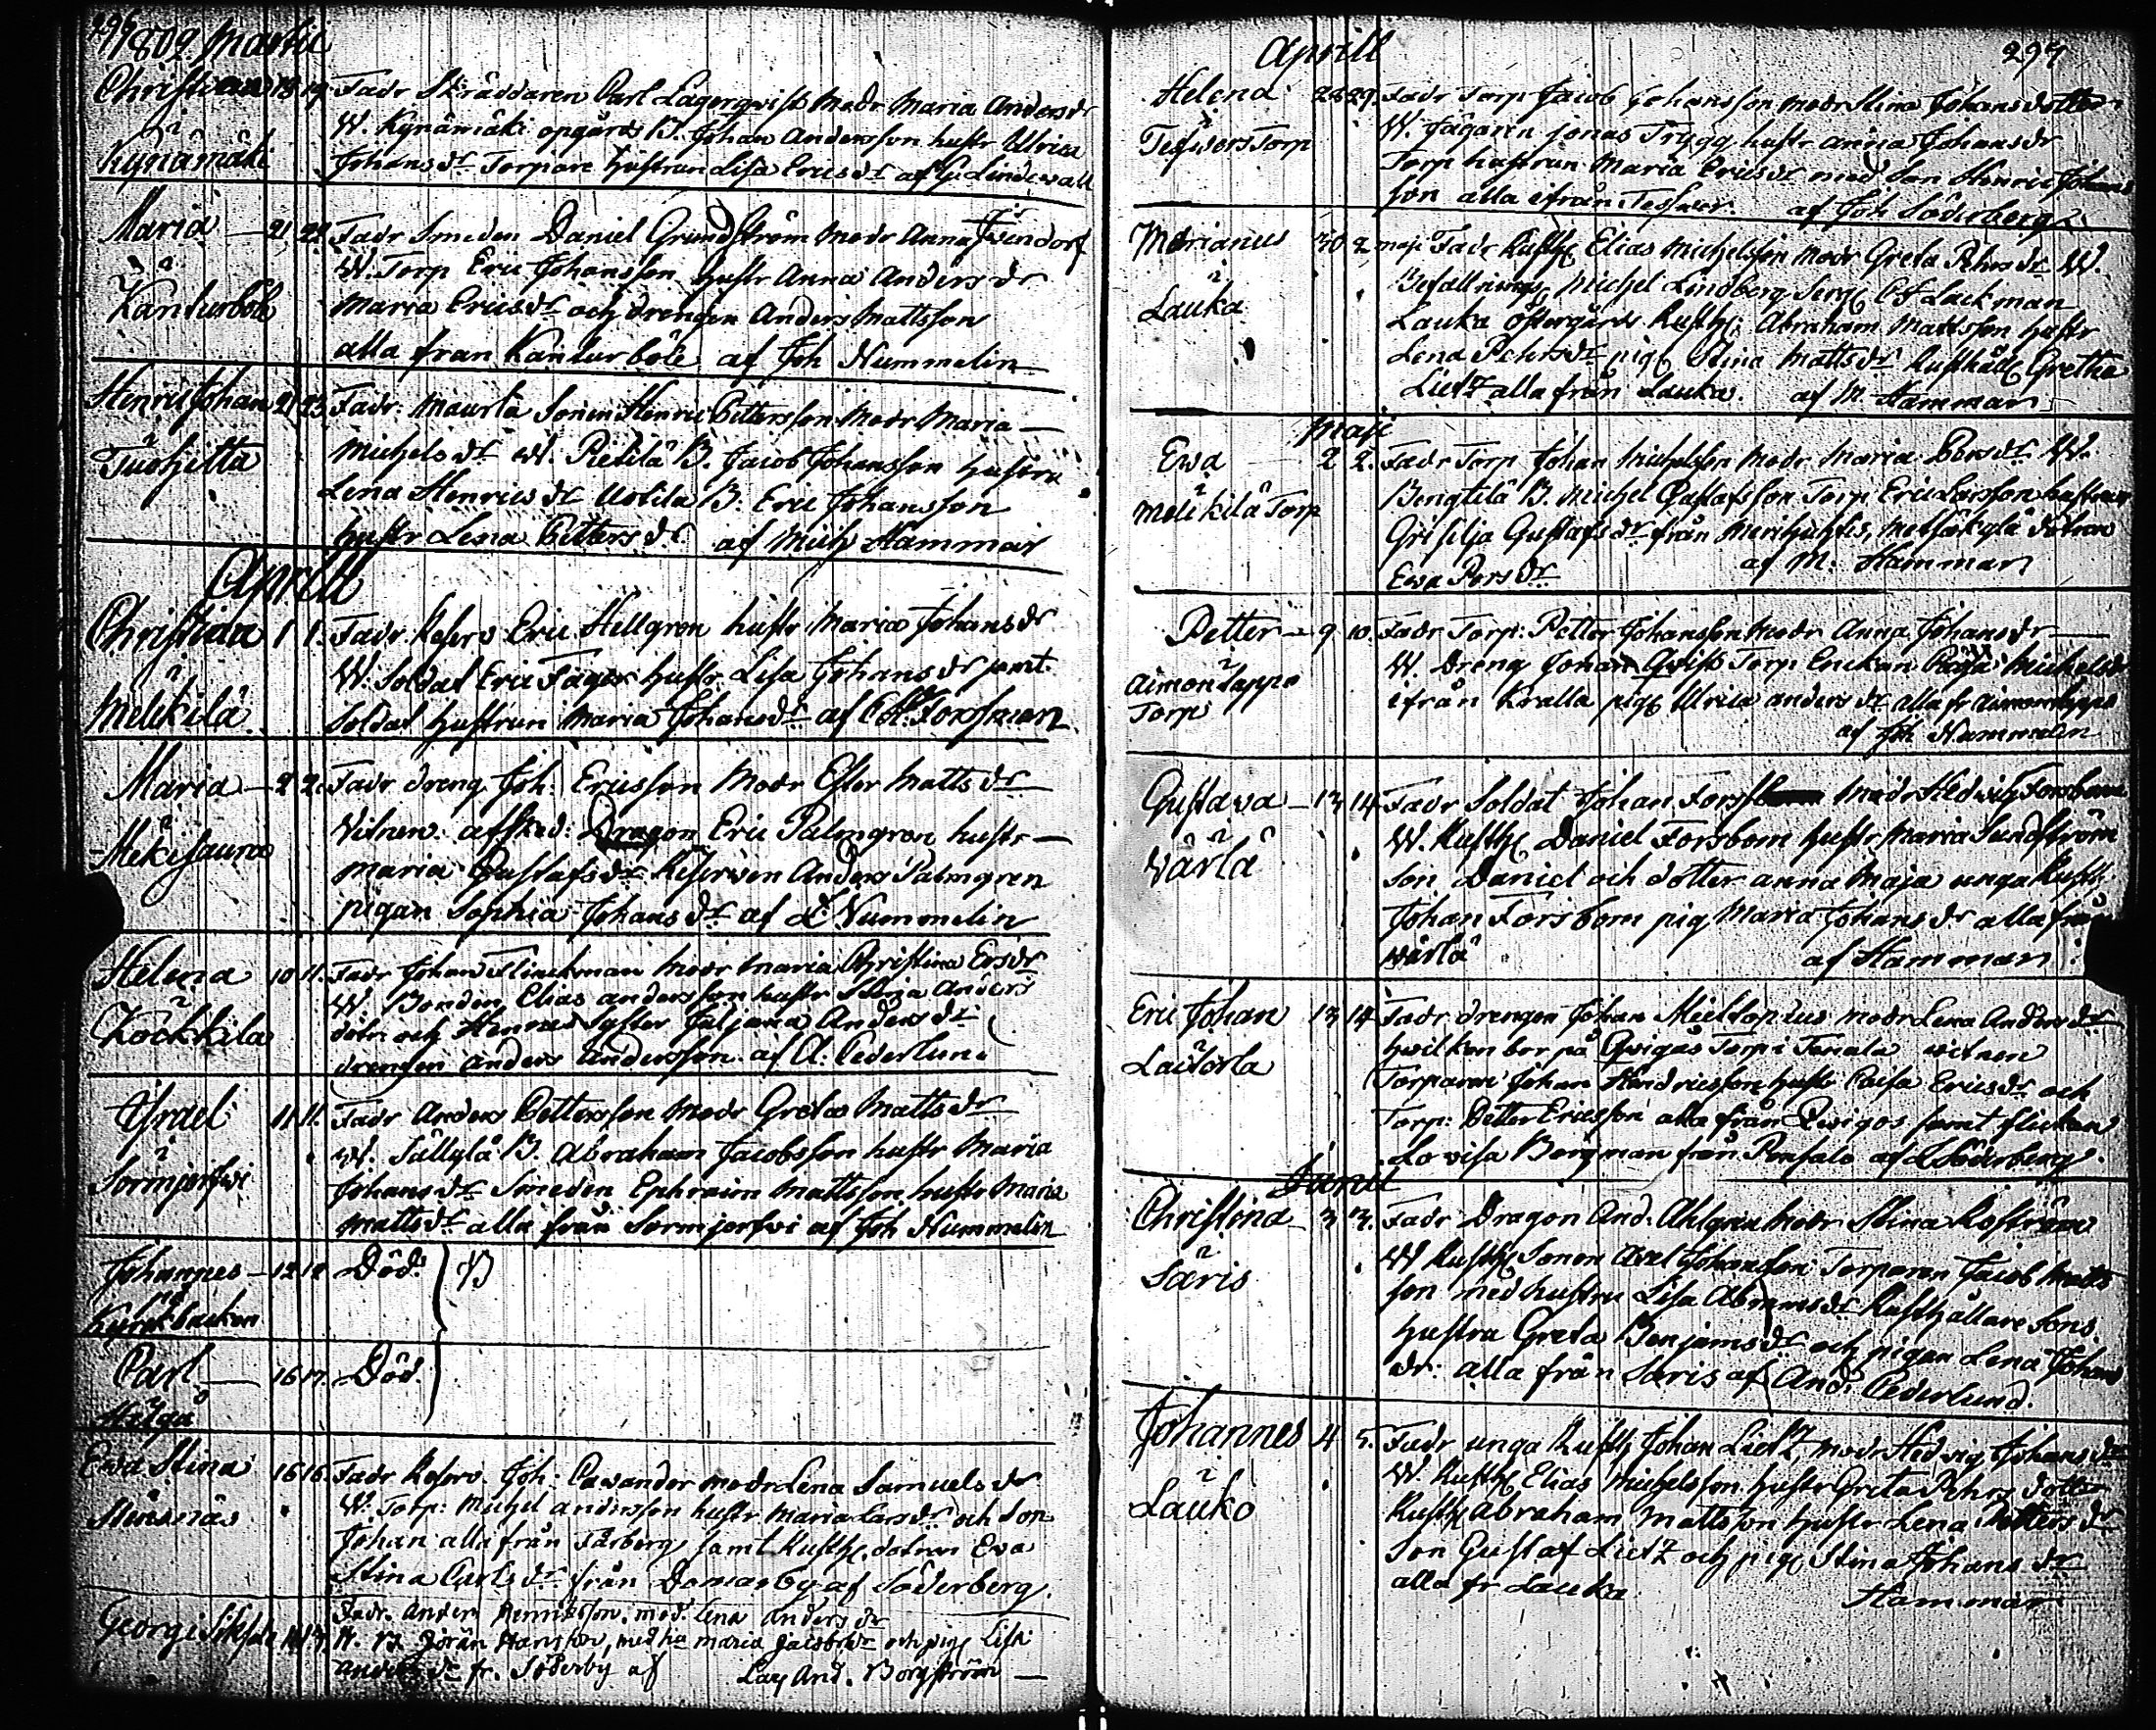 296
1802 Martii
Christian 18 19. Fadr Skräddaren Carl Lagerqvist Modr Maria Andersdr
i W. Kynämäki opgårds B. Johan Andersson hustr Ulrica
Kynämäki Johansdr Torpare hustrun Lisa Ericsdr af G. Lindewall
Maria 21 22. Fadr Smeden Daniel Grundström Modr Anna
i W. Torp Eric Johansson hustr Anna Andersdr
Kanturböle Maria Ericsdr och drengen Anders Mattsson
alla från Kanturböle af Joh Nummelin
Henric Johan 21 23. Fadr. Maurla Sonen Henric Pettersson Modr Maria
i Michelsdr W. Pietilä B. Jacob Johansson hustru
Tuohitta Lena Henricsdr Uotila B. Eric Johansson
hustr Lena Pettersdr af Mich Hammar
Aprill
Christina 1 1. Fadr Reserv Eric Hellgren hustr Maria Johansdr
i W. Soldat Eric Fager hustr Lisa Johansdr samt
Melikilä Soldat hustrun Maria Johansdr af C H. Forssman
Maria 2 2. Fadr dreng Joh: Ericsson Modr Ester Mattsdr
i Vitnen: afsked: Dragon Eric Palmgren hustr
Mekisauro Maria Gustafsdr Reserven Anders Palmgren
pigan Sophia Johansdr af L. Nummelin
Helena 10 11. Fadr Johan Flinckman Modr Maria Christina Ersdr
i W. Bonden Elias Andersson hustr Maria Anders
Kockkila dotr och Hennes Syster Juljana Andersdr
drengen Anders Andersson af A. Cederlund
Israel 11 11. Fadr Anders Pettersson Modr Greta Mattsdr
i W. Sällylä B. Abraham Jacobsson hustr Maria
Sormjerfwi Johansdr Smeden Ephraim Mattsson hustr Maria
Mattsdr alla från Sormjerfwi af Joh Nummelin
Johannes 12 12 Död.
på
Kyrkbacken
Carl 16 17. Död.
Ewa Stina 16 16. Fadr Reserv. Joh: Cavander Modr Lena Samuelsdr
W. Torp: Michel Andersson hustr Maria Larsdr och Son
Johan alla från Tårberg samt Rusth. dotren Eva
Stina Carlsdr från Domarby af Söderberg.
Georgi Fadr. Anders Henriksson. mod. Lena Andersdr
W. B. Jöran Hansson, med hu Maria Jacobsdr och pig Lisa
Andersdr fr. Söderby af Cap And. Borgström
Aprill 297
Helena 28 29. Fadr Torp Jacob Johansson Modr Stina Johansdotter
i W. Jägaren Jonas Trygg hustr Anna Johansdr
Tefwers Torp Torp hustrun Maria Ericsdr med Son Henric Johans
son alla ifrån Tefwer. af Joh Söderberg
Marianus 30 2 maji Fadr Rusth Elias Michelsson Modr Greta Pehrsdr W.
i Befallnings Michel Lindberg Serg C F Lackman
Lauka Lauka östergårds Rusth: Abraham Mattsson hustr
Lena Pehrsdr pig Stina Mattsdr Rusthåll Gretha
Lietz alla från Lauka. af M Hammar
Maji
Ewa 2 2. Fadr Torp Johan Michelsson Modr Maria Persdr W.
i Bengtilä B. Michel Gustafsson Torp Eric Larsson hustrun
Melikilä Torp Grisilja Gustafsdr från Merihuhtis, Metsäkylä dotren
Ewa Persdr af M. Hammar
Petter 9 10. Fadr Torp: Petter Johansson Modr Anna Johansdr
i W. Dreng Johan Qvist Torp Enckan Michelsdr
Aimontappo ifrån Kralla pig Ulrica Andersdr alla fr Aimontappo
Torp af Joh. Nummelin
Gustava 13 14. Fadr Soldat Johan Forss Modr Hedvig Forsbom
i W. Rusth Daniel Forsbom hustr Maria Sundström
Wärlä Son Daniel och dotter Anna Maja unga Rusth
Johan Forsbom pig Maria Johansdr alla från
Wärlä af Hammar
Eric Johan 13 14 Fadr drengen Johan Mieltopius modr Lena Andersdr
i hwilken bor på Qwigås Torp i Tenala witnen
Laitorla Torparen Johan Hendricsson hustr Caisa Ericsdr och
Torp: Petter Ericsson alla från Qwigos samt flickan
Lovisa Bergman från Pensalo af L Söderberg.
Junii
Christina 3 3. Fadr Dragon And. Ahlgren Modr Stina Roström
i W Rusth Sonen Axel Johansson Torparen Jacob Matts
Säris son med hustru Lisa Abramsdr Rusthållare Sons
hustru Greta Benjamsdr och pigan Lena Johans
dr: alla från Säris af And: Cederlund.
Johannes 4 5. Fadr unga Rusth Johan Lietz, Modr Hedvig Johansdr
i W. Rusth Elias Michelsson hustr Greta Pehrs dotter
Lauko Rusth Abraham Mattsson hustr Lena Pettersdr
Son Gustaf Lietz och pig Stina Johansdr
alla fr Lauka Hammar